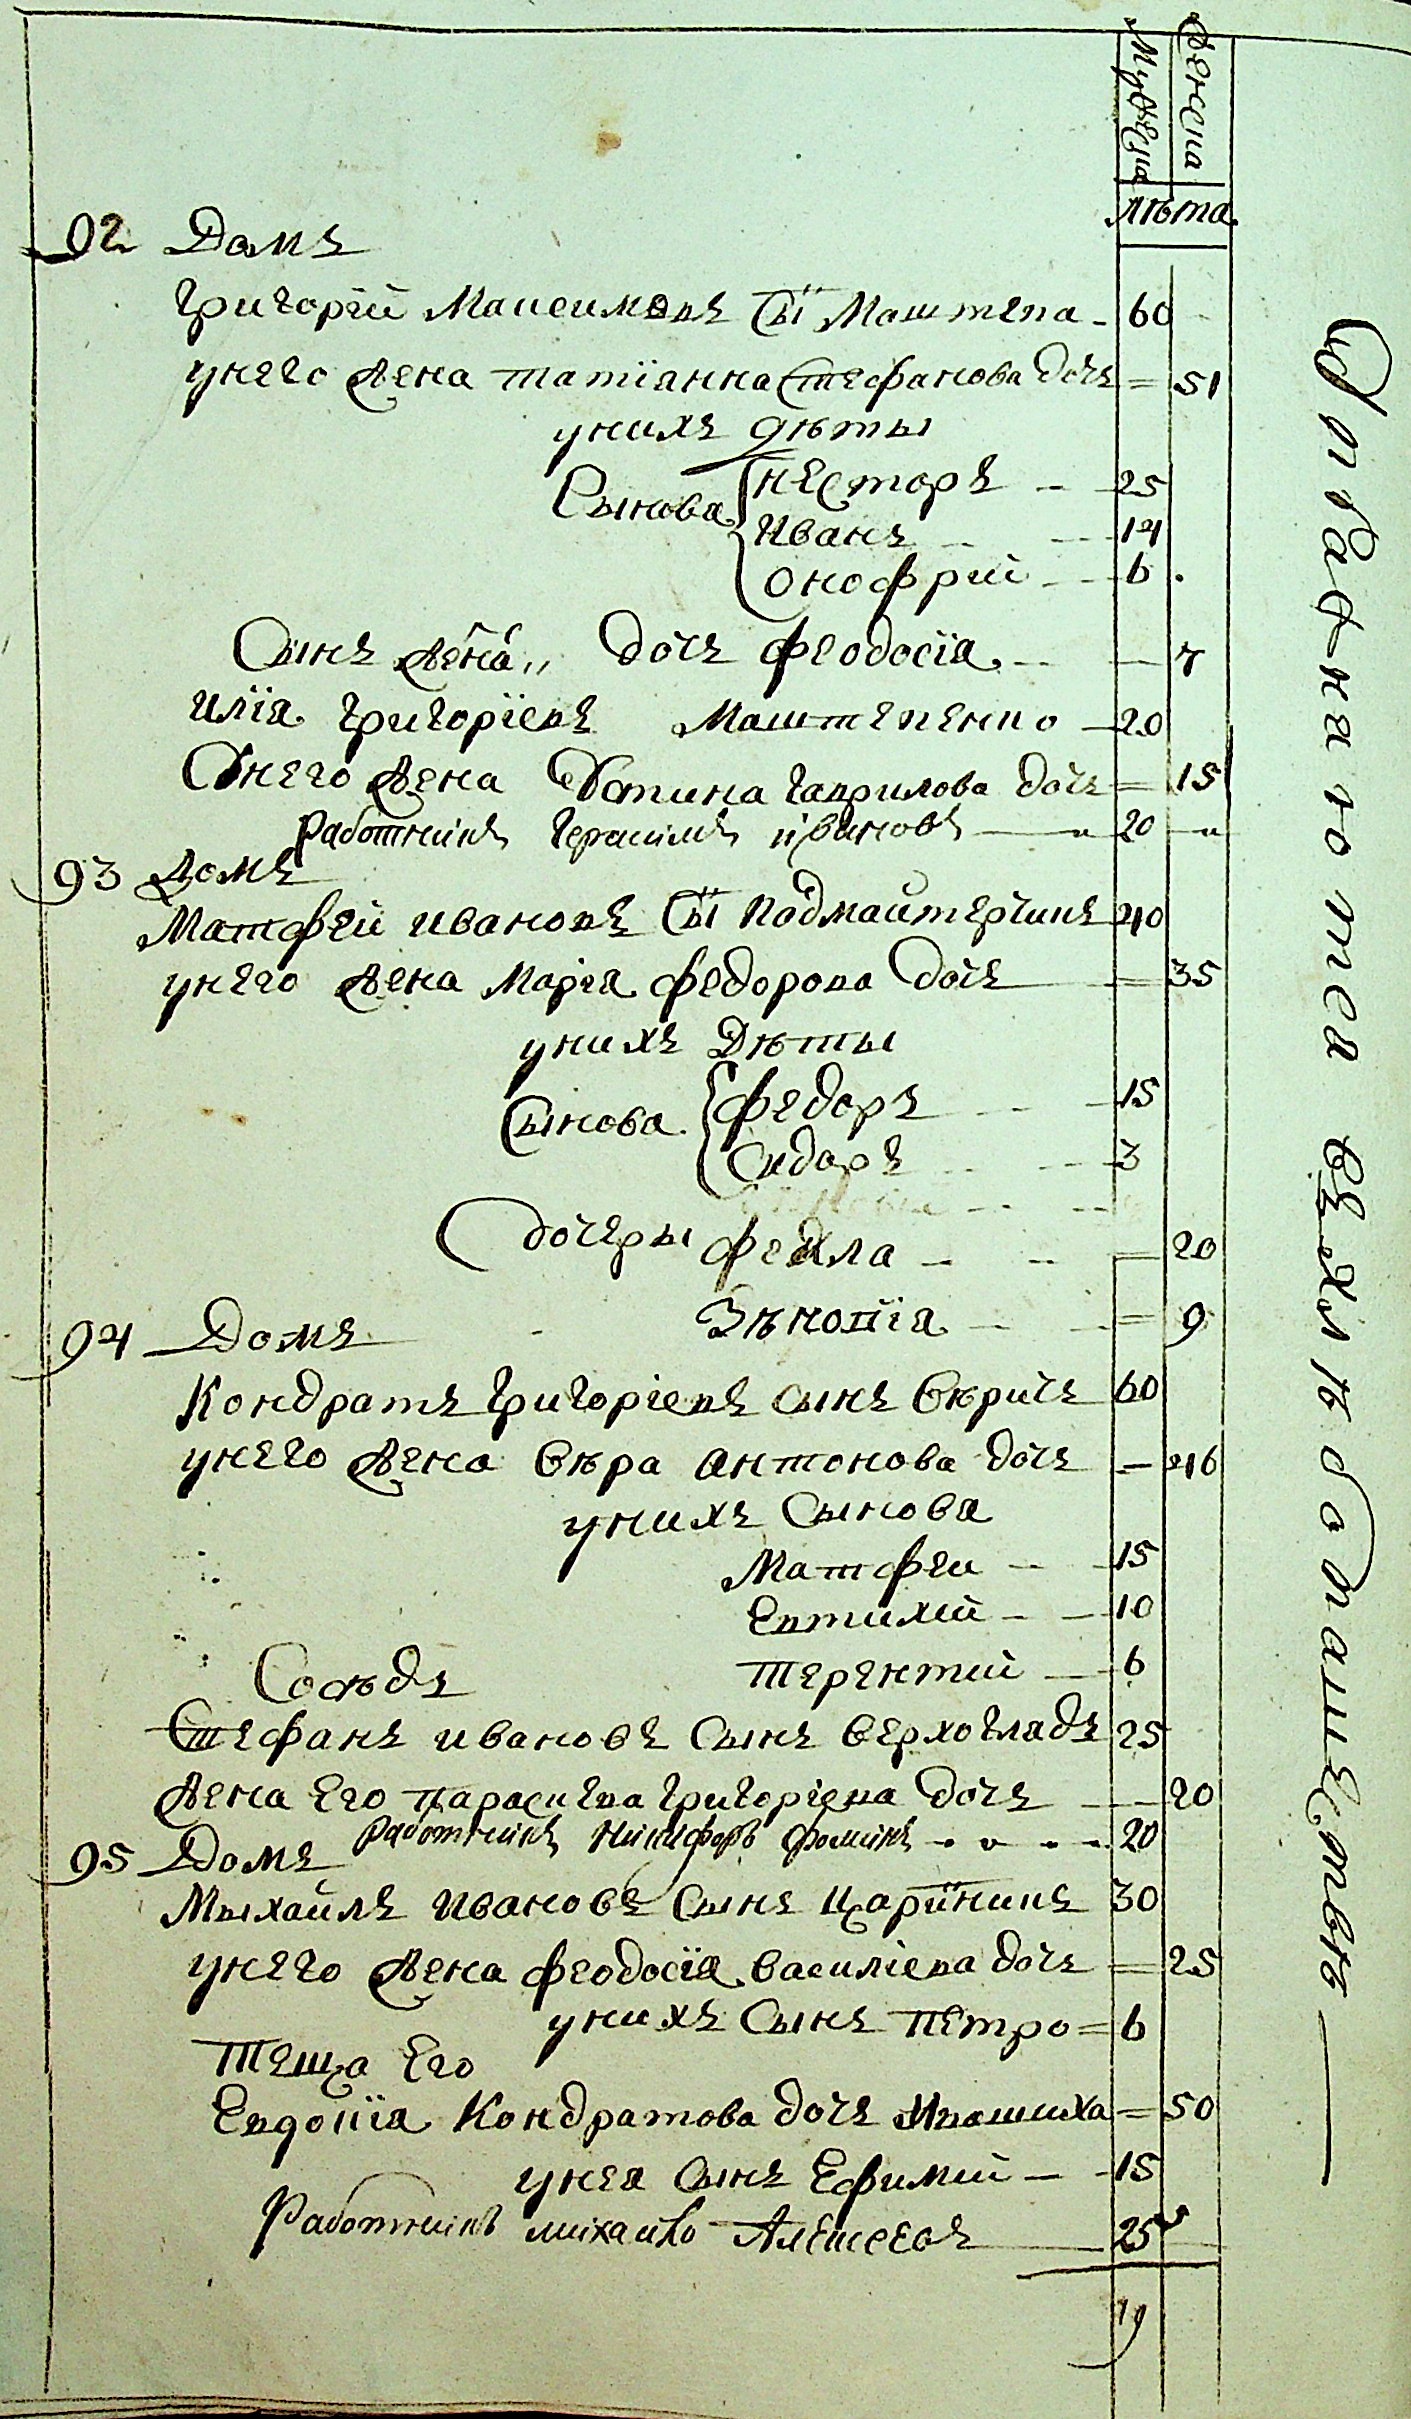 Мужеска
Женска
лѣта
92 Домъ
Григорій Максимовъ Сн̃ъ Маштепа - 60
унего жена Татіанна Стефанова дочь = 51
унихъ дѣты
Сынова Несторъ - - 25
Иванъ - - 14
Онофрій - - 6
Сынъ жена „ дочь Феодосія - - 7
Илія Григоріевъ Маштепенко - 20
Унего жена Устина Гаврилова дочь = 15
Работникъ Герасимъ Ивановъ - 20
93 Домъ
Матфей Ивановъ Сн̃ъ Подмайтерчикъ 40
унего жена Марія Федорова дочь = 35
унихъ Дѣты
Сынова Федоръ - - 15
Сидоръ - - 3
дочеры Фекла - - = 20
Зѣновія - - = 9
94 Домъ
Кондратъ Григоріевъ сынъ Вѣричъ 60
унего жена Вѣра Антонова дочь - 46
унихъ Сынова
Матфей - - 15
Евтихій - - 10
Терентій - 6
Сосѣдъ
Стефанъ Ивановъ Сынъ Верхогладъ 25
Жена Его Параскева Григоріева дочь - 20
Работникъ Никифоръ Фоминъ - - - 20
95 Домъ
Мыхайлъ Ивановъ Сынъ Царинникъ 30
унего жена Феодосія Василіева дочь = 25
унихъ Сынъ Петро = 6
Теща Его
Евдокія Кондратова дочь Ивашиха = 50
унея Сынъ Ефимій - - 15
Работникъ Михайло Алексеевъ 25
19
Справка нотея